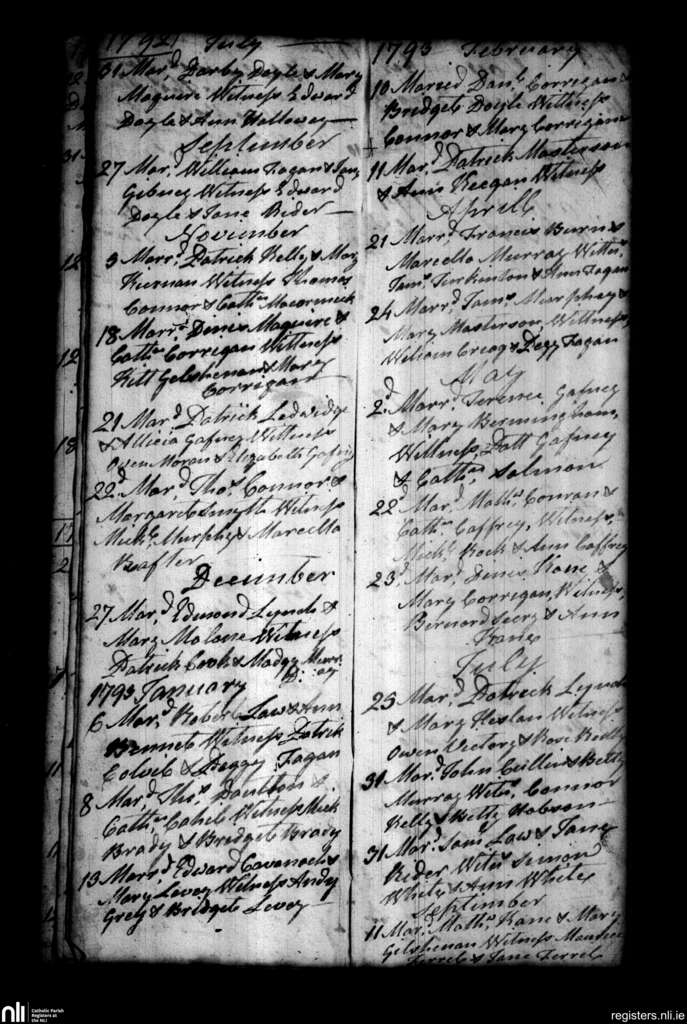 1792 July
31 Mar.d Darby Doyle & Mary
Maguire Witness Edward
Doyle & Ann Holloway
September
27 Mar.d William Fagan & Jane
Gibney Witness Edward
Doyle & Jane Rider
November
3 Marr.d Patrick Kelly & Mary
Kiernan Witness Thomas
Connor & Cath.n Macormick
18 Marr.d Denis Maguire &
Cath.n Corrigan Wittness
Kitt Gelshenan & Mary
Corrigan
21 Mar.d Patrick Ledwidge
& Allicia Gafney Wittness
Owen Moran & Elizabeth Gafny
22.d Mar.d Tho.s Connor &
Margaret Smyth Witness
Mich.l Murphy & Marcella
December
27 Mar.d Edmond Lynch &
Mary Malone Witness
Patrick Cook & Madgy Murr
ay
1793 January
6 Mar.d Robert Law & Ann
Bennet Witness Patrick
& Peggy Fagan
8 Mar.d Tho.s &
Cath.n Cahel Witness Mick
Brady & Bridget Brady
13 Marr.d Edward Cavanach &
Mary Levey Witness Andy
Grey & Bridget Levey
1793 February
10 Maried Dan.l Corrigan &
Bridget Doyle Wittness
Connor & Mary Corrigan
11 Mar.d Patrick Masterson
& Ann Keegan Witness
Aprill
21 Marr.d Francis Burn &
Marcella Murray Wittn.s
Jam.s & Ann Fagan
24 Marr.d Jam.s Murphey &
Mary Masterson Wittness,
William Creag & Pegy Fagan
May
2.d Marr.d Terence Gafney
& Mary Bermingham,
Wittness, Patt Gafney
& Cath.n Salmon
22.d Mar.d Math.w Conran &
Cath.n Caffrey, Witness,
Mich.l Rock & Ann Caffrey
23.d Mar.d Denis Kane &
Mary Corrigan, Witness,
Bernard Geory & Ann
July
25 Mar.d Patrick Lynch
& Mary Heslan Witness
Owen Victory & Rose Reilly
31 Mar.d John Cullin & Betty
Murray Wit.s Connor
Kelly & Betty Hobson
31 Mar.d Sam.l Law & Jane
Rider Wit.s Simon
White & Ann White
September
11 Mar.d Math.w Kane & Mary
Gelshenan Witness Maurice
Ferrel & Jane Ferrel
nli
Catholic Parish
Registers at
the NLI
registers.nli.ie